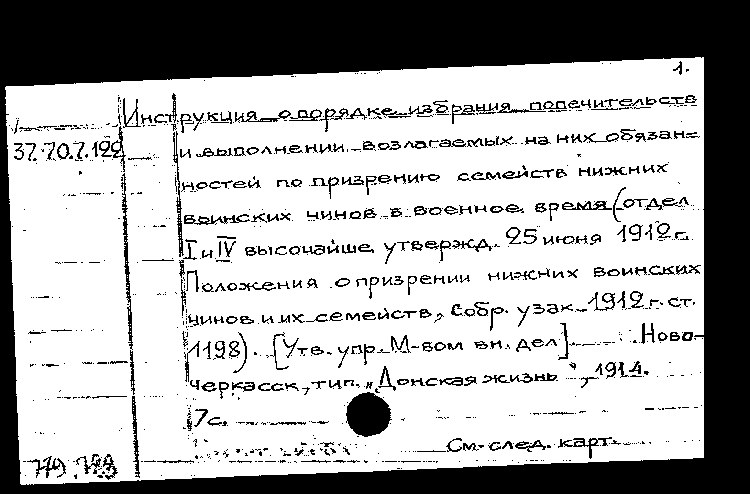 1.
Инструкция о порядке избрания попечительств
37.70.7.122
и выполнении возлагаемых на них обязан=
ностей по призрению семейств нижних
воинских чинов в военное время (отдел
I и IV высочайше утвержд. 25 июня 1912 г.
Положения о призрении нижних воинских
чинов и их семейств, Собр. узак. 1912 г. ст.
1198). [Утв. упр. М-вом вн. дел]. Ново-
черкасск, тип. „Донская жизнь", 1914.
7с.
См. след. карт.